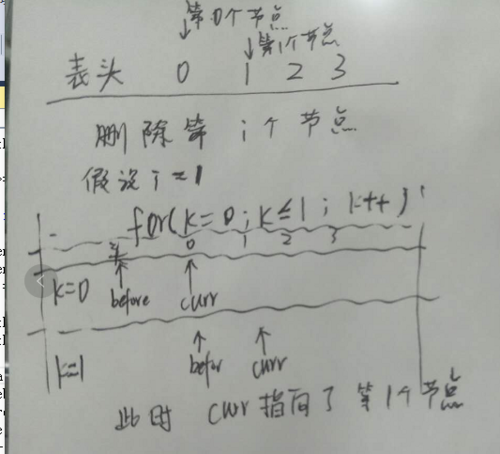 第0个节点
↓
第1个节点
↓
表头 0 1 2 3
删除第 i 个 节点
假设 i=1
for(k=0;k≤1;k++)
0 1 2 3
↑ ↑
k=0 before curr
↑ ↑
k=1 befor curr
此时 curr 指向了 第1个节点